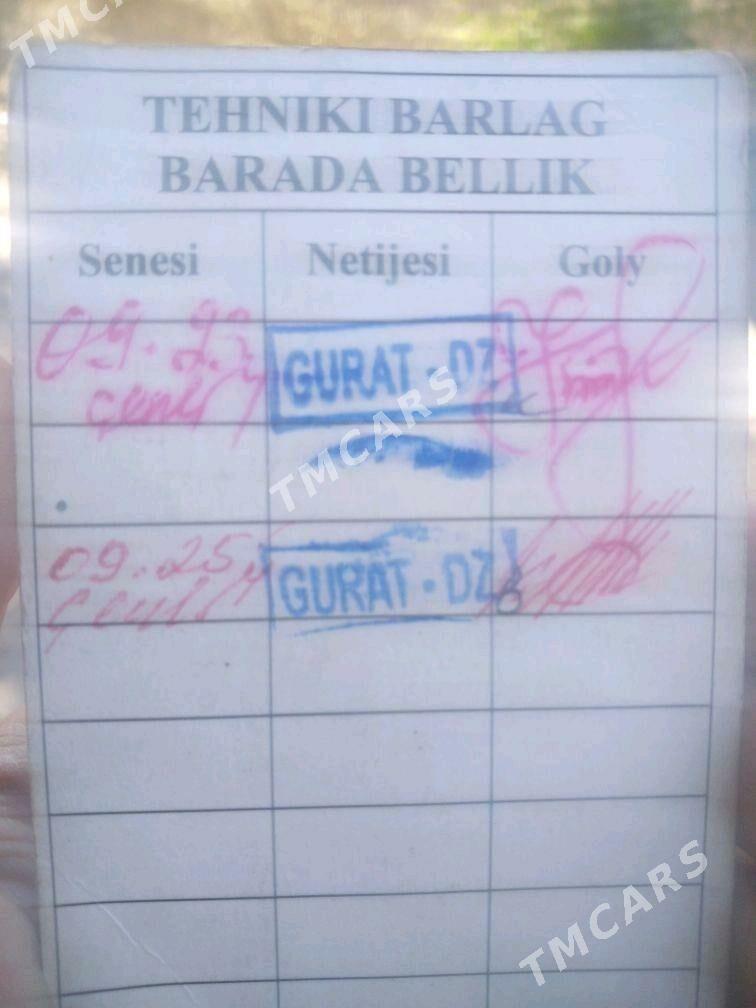 TEHNIKI BARLAG
BARADA BELLIK
Senesi Netijesi Goly
09.23
GURAT - DZ
09.25
GURAT - DZ
TMCARS
TMCARS
TMCARS